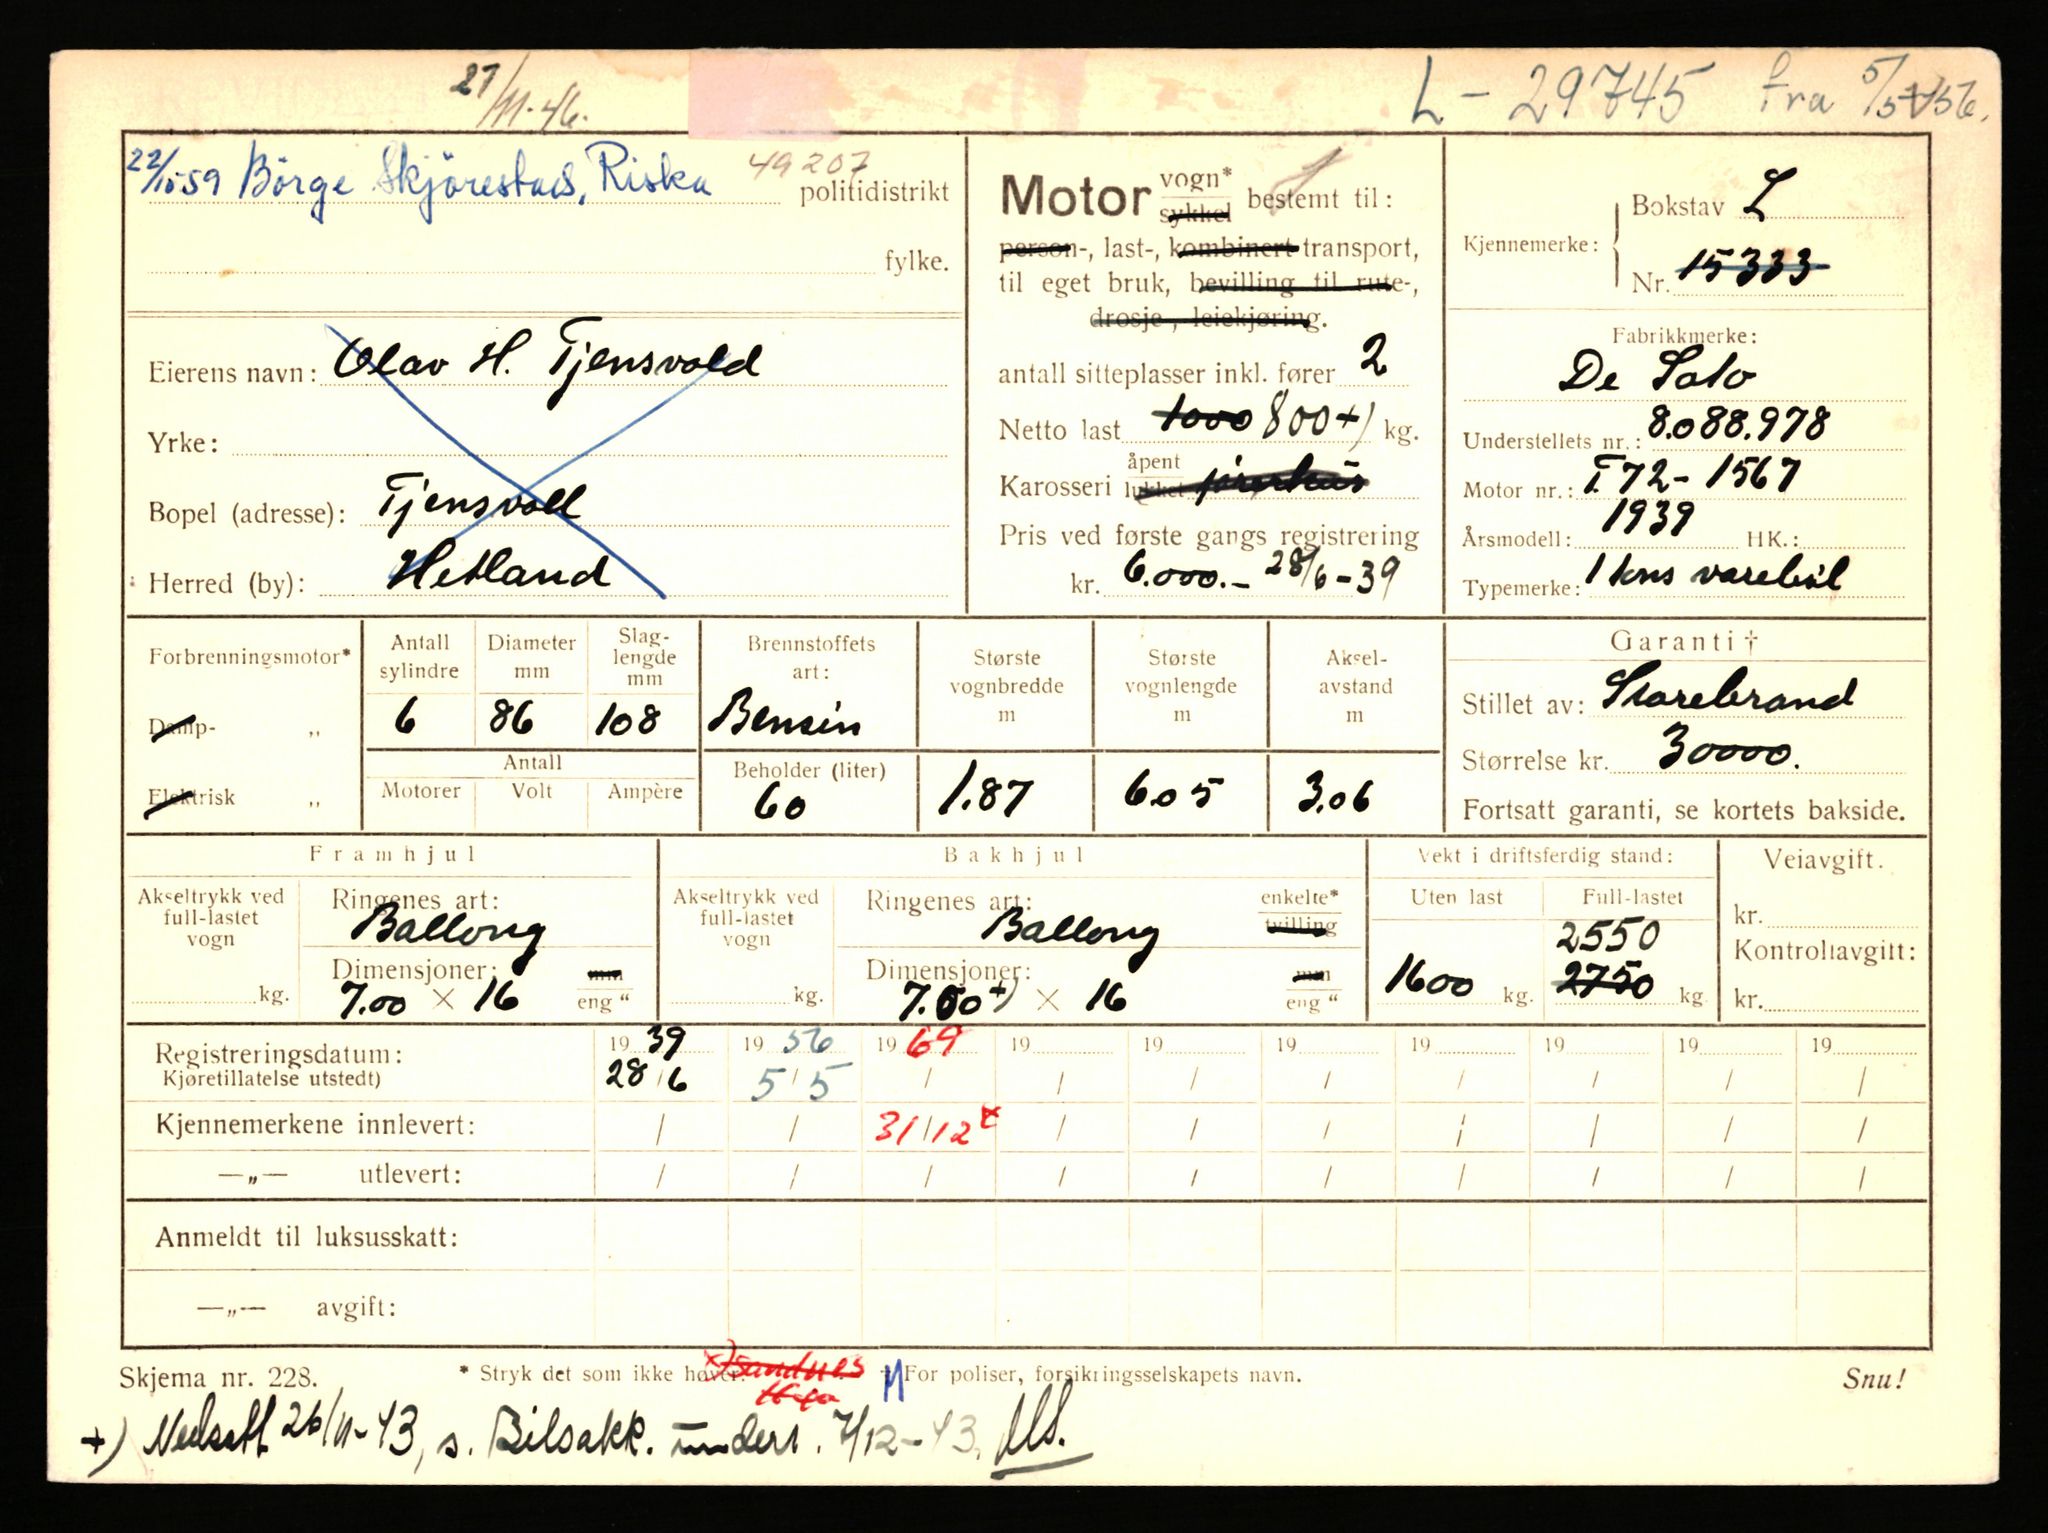 27/11-46.
L - 29745 fra 5/5-56.
22/10-59 Börge Skjörestad, Riska 49207
politidistrikt
fylke.
Eierens navn: Olav H. Tjensvold
Yrke:
Bopel (adresse): Tjensvoll
Herred (by): Hetland
Motor vogn* sykkel bestemt til:
person-, last-, kombinert transport,
til eget bruk, bevilling til rute-,
drosje-, leiekjøring.
antall sitteplasser inkl. fører 2
Netto last 1000 800 +) kg.
Karosseri åpent lukket førerhus
Pris ved første gangs registrering
kr. 6.000.- 28/6-39
Kjennemerke: Bokstav L
Nr. 15333
Fabrikkmerke:
De Soto
Understellets nr.: 8.088.978
Motor nr.: T.72-1567
Årsmodell: 1939 HK.:
Typemerke: 1 tons varebil
Forbrenningsmotor*
Damp- „
Elektrisk „
Antall sylindre 6
Diameter mm 86
Slag-lengde mm 108
Antall
Motorer Volt Ampère
Brennstoffets art: Bensin
Beholder (liter) 60
Største vognbredde m 1.87
Største vognlengde m 6.05
Aksel-avstand m 3.06
Garanti †
Stillet av: Storebrand
Størrelse kr. 30000.
Fortsatt garanti, se kortets bakside.
Framhjul
Akseltrykk ved full-lastet vogn kg.
Ringenes art: Ballong
Dimensjoner: mm
7.00 × 16 eng "
Bakhjul
Akseltrykk ved full-lastet vogn kg.
Ringenes art: Ballong enkelte* tvilling
Dimensjoner: mm
7.00 +) × 16 eng "
Vekt i driftsferdig stand:
Uten last Full-lastet
2550
1600 kg. 2750 kg.
Veiavgift.
kr.
Kontrollavgift:
kr.
Registreringsdatum: 19 39 19 56 19 69 19 19 19 19 19 19 19
Kjøretillatelse utstedt) 28/6 5/5 / / / / / / / /
Kjennemerkene innlevert: / / 31/12 x / / / / / / /
—„— utlevert: / / / / / / / / / /
Anmeldt til luksusskatt:
—„— avgift:
Skjema nr. 228.
* Stryk det som ikke høver. x) Sandnes
M For poliser, forsikringsselskapets navn.
Snu!
+) Nedsatt 26/11-43, s. Bilsakk. unders. 7/12-43.